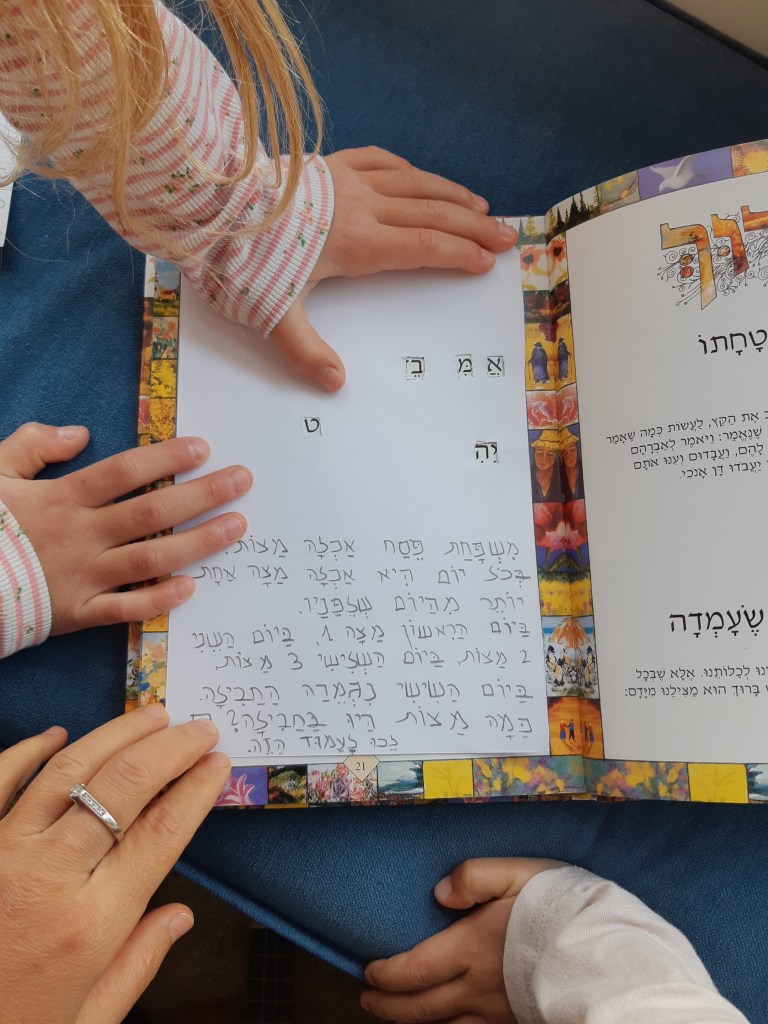 אֲ מִּ בֵּ
ט
יהִ
מִשְׁפַּחַת פֶּסַח אָכְלָה מַצּוֹת.
בְּכָל יוֹם הִיא אָכְלָה מַצָּה אַחַת
יוֹתֵר מֵהַיּוֹם שֶׁלְּפָנָיו.
בַּיּוֹם הָרִאשׁוֹן מַצָּה 1, בַּיּוֹם הַשֵּׁנִי
2 מַצּוֹת, בַּיּוֹם הַשְּׁלִישִׁי 3 מַצּוֹת,
בַּיּוֹם הַשִּׁישִׁי נִגְמְרָה הַחֲבִילָה.
כַּמָּה מַצּוֹת הָיוּ בַּחֲבִילָה?
לְכוּ לָעַמּוּד הַזֶּה.
21
רוּךְ
טָחָתוֹ
ב אֶת הַקֵּץ, לַעֲשׂוֹת כְּמָה שֶׁאָמַר
שֶׁנֶּאֱמַר: וַיֹּאמֶר לְאַבְרָהָם
לָהֶם, וַעֲבָדוּם וְעִנּוּ אֹתָם
יַעֲבֹדוּ דָּן אָנֹכִי.
שֶׁעָמְדָה
ינוּ לְכַלּוֹתֵנוּ. אֶלָּא שֶׁבְּכָל
שׁ בָּרוּךְ הוּא מַצִּילֵנוּ מִיָּדָם: